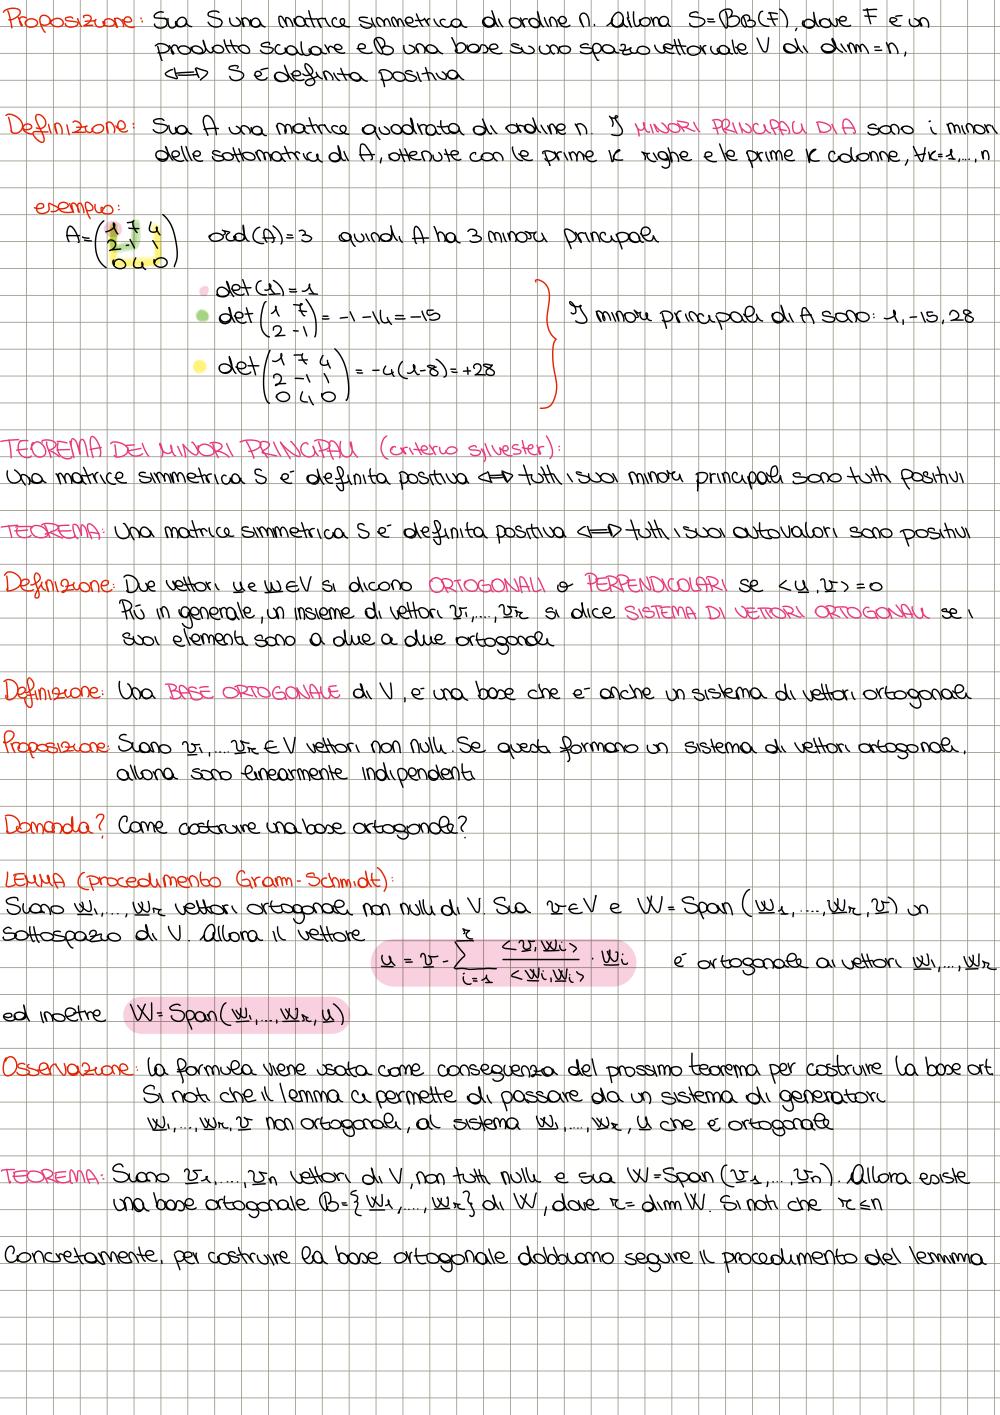 Proposizione: Sia S una matrice simmetrica di ordine n. Allora S=B_B(F), dove F è un
prodotto scalare e B una base su uno spazio vettoriale V di dim=n,
⟺ S è definita positiva
Definizione: Sia A una matrice quadrata di ordine n. I MINORI PRINCIPALI DI A sono i minori
delle sottomatrici di A, ottenute con le prime K righe e le prime K colonne, ∀K=1,...,n
esempio:
A=(1 7 4 / 2 -1 1 / 0 4 0) ord(A)=3 quindi A ha 3 minori principali
det(1)=1
det(1 7 / 2 -1) = -1-14=-15 I minori principali di A sono: 1,-15,28
det(1 7 4 / 2 -1 1 / 0 4 0) = -4(1-8)=+28
TEOREMA DEI MINORI PRINCIPALI (criterio sylvester):
Una matrice simmetrica S è definita positiva ⟺ tutti i suoi minori principali sono tutti positivi
TEOREMA: Una matrice simmetrica S è definita positiva ⟺ tutti i suoi autovalori sono positivi
Definizione: Due vettori u e w∈V si dicono ORTOGONALI o PERPENDICOLARI se <u,v>=0
Più in generale, un insieme di vettori v1,...,vr si dice SISTEMA DI VETTORI ORTOGONALI se i
suoi elementi sono a due a due ortogonali
Definizione: Una BASE ORTOGONALE di V, è una base che è anche un sistema di vettori ortogonali
Proposizione: Siano v1,...vr∈V vettori non nulli. Se questi formano un sistema di vettori ortogonali,
allora sono linearmente indipendenti
Domanda? Come costruire una base ortogonale?
LEMMA (procedimento Gram-Schmidt):
Siano w1,...,wr vettori ortogonali non nulli di V. Sia v∈V e W=Span(w1,...,wr,v) un
sottospazio di V. Allora il vettore
u = v - ∑_{i=1}^{r} <v,wi>/<wi,wi> · wi è ortogonale ai vettori w1,...,wr
ed inoltre W=Span(w1,...,wr,u)
Osservazione: la formula viene usata come conseguenza del prossimo teorema per costruire la base ort
Si noti che il lemma ci permette di passare da un sistema di generatori
w1,...,wr,v non ortogonali, al sistema w1,...,wr,u che è ortogonale
TEOREMA: Siano v1,...,vn vettori di V, non tutti nulli e sia W=Span(v1,...,vn). Allora esiste
una base ortogonale B={w1,...,wr} di W, dove r=dimW. Si noti che r≤n
Concretamente, per costruire la base ortogonale dobbiamo seguire il procedimento del lemmma